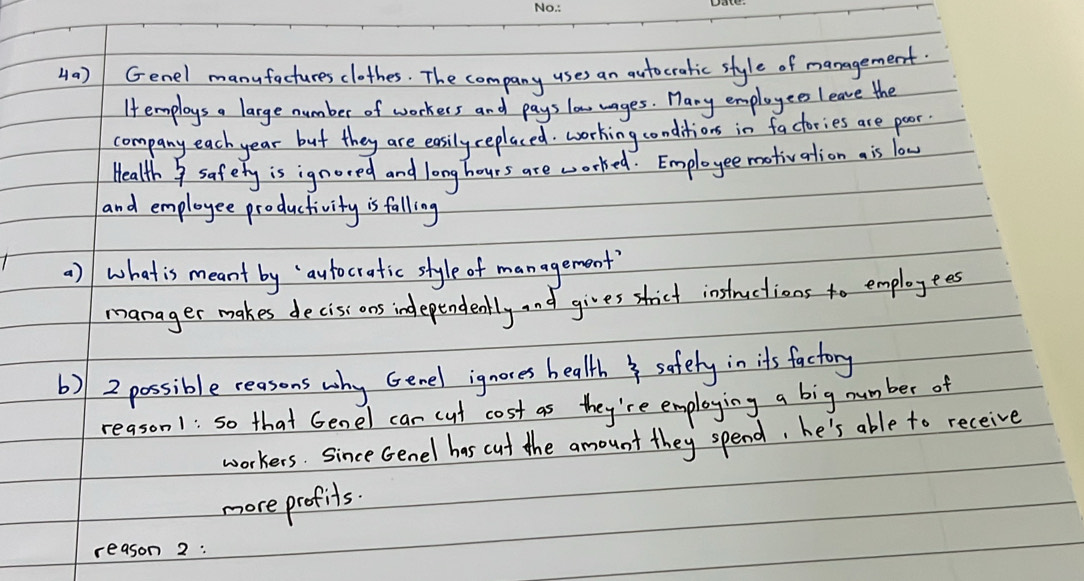 No.:
Date:
4a) Genel manufactures clothes. The company uses an autocratic style of management.
It employs a large number of workers and pays low wages. Many employees leave the
company each year but they are easily replaced. working conditions in factories are poor.
Health & safety is ignored and long hours are worked. Employee motivation is low
and employee productivity is falling
a) what is meant by 'autocratic style of management'
manager makes decisions independently and gives strict instructions to employees
b) 2 possible reasons why Genel ignores health & safety in its factory
reason 1: so that Genel can cut cost as they're employing a big number of
workers. Since Genel has cut the amount they spend, he's able to receive
more profits.
reason 2: